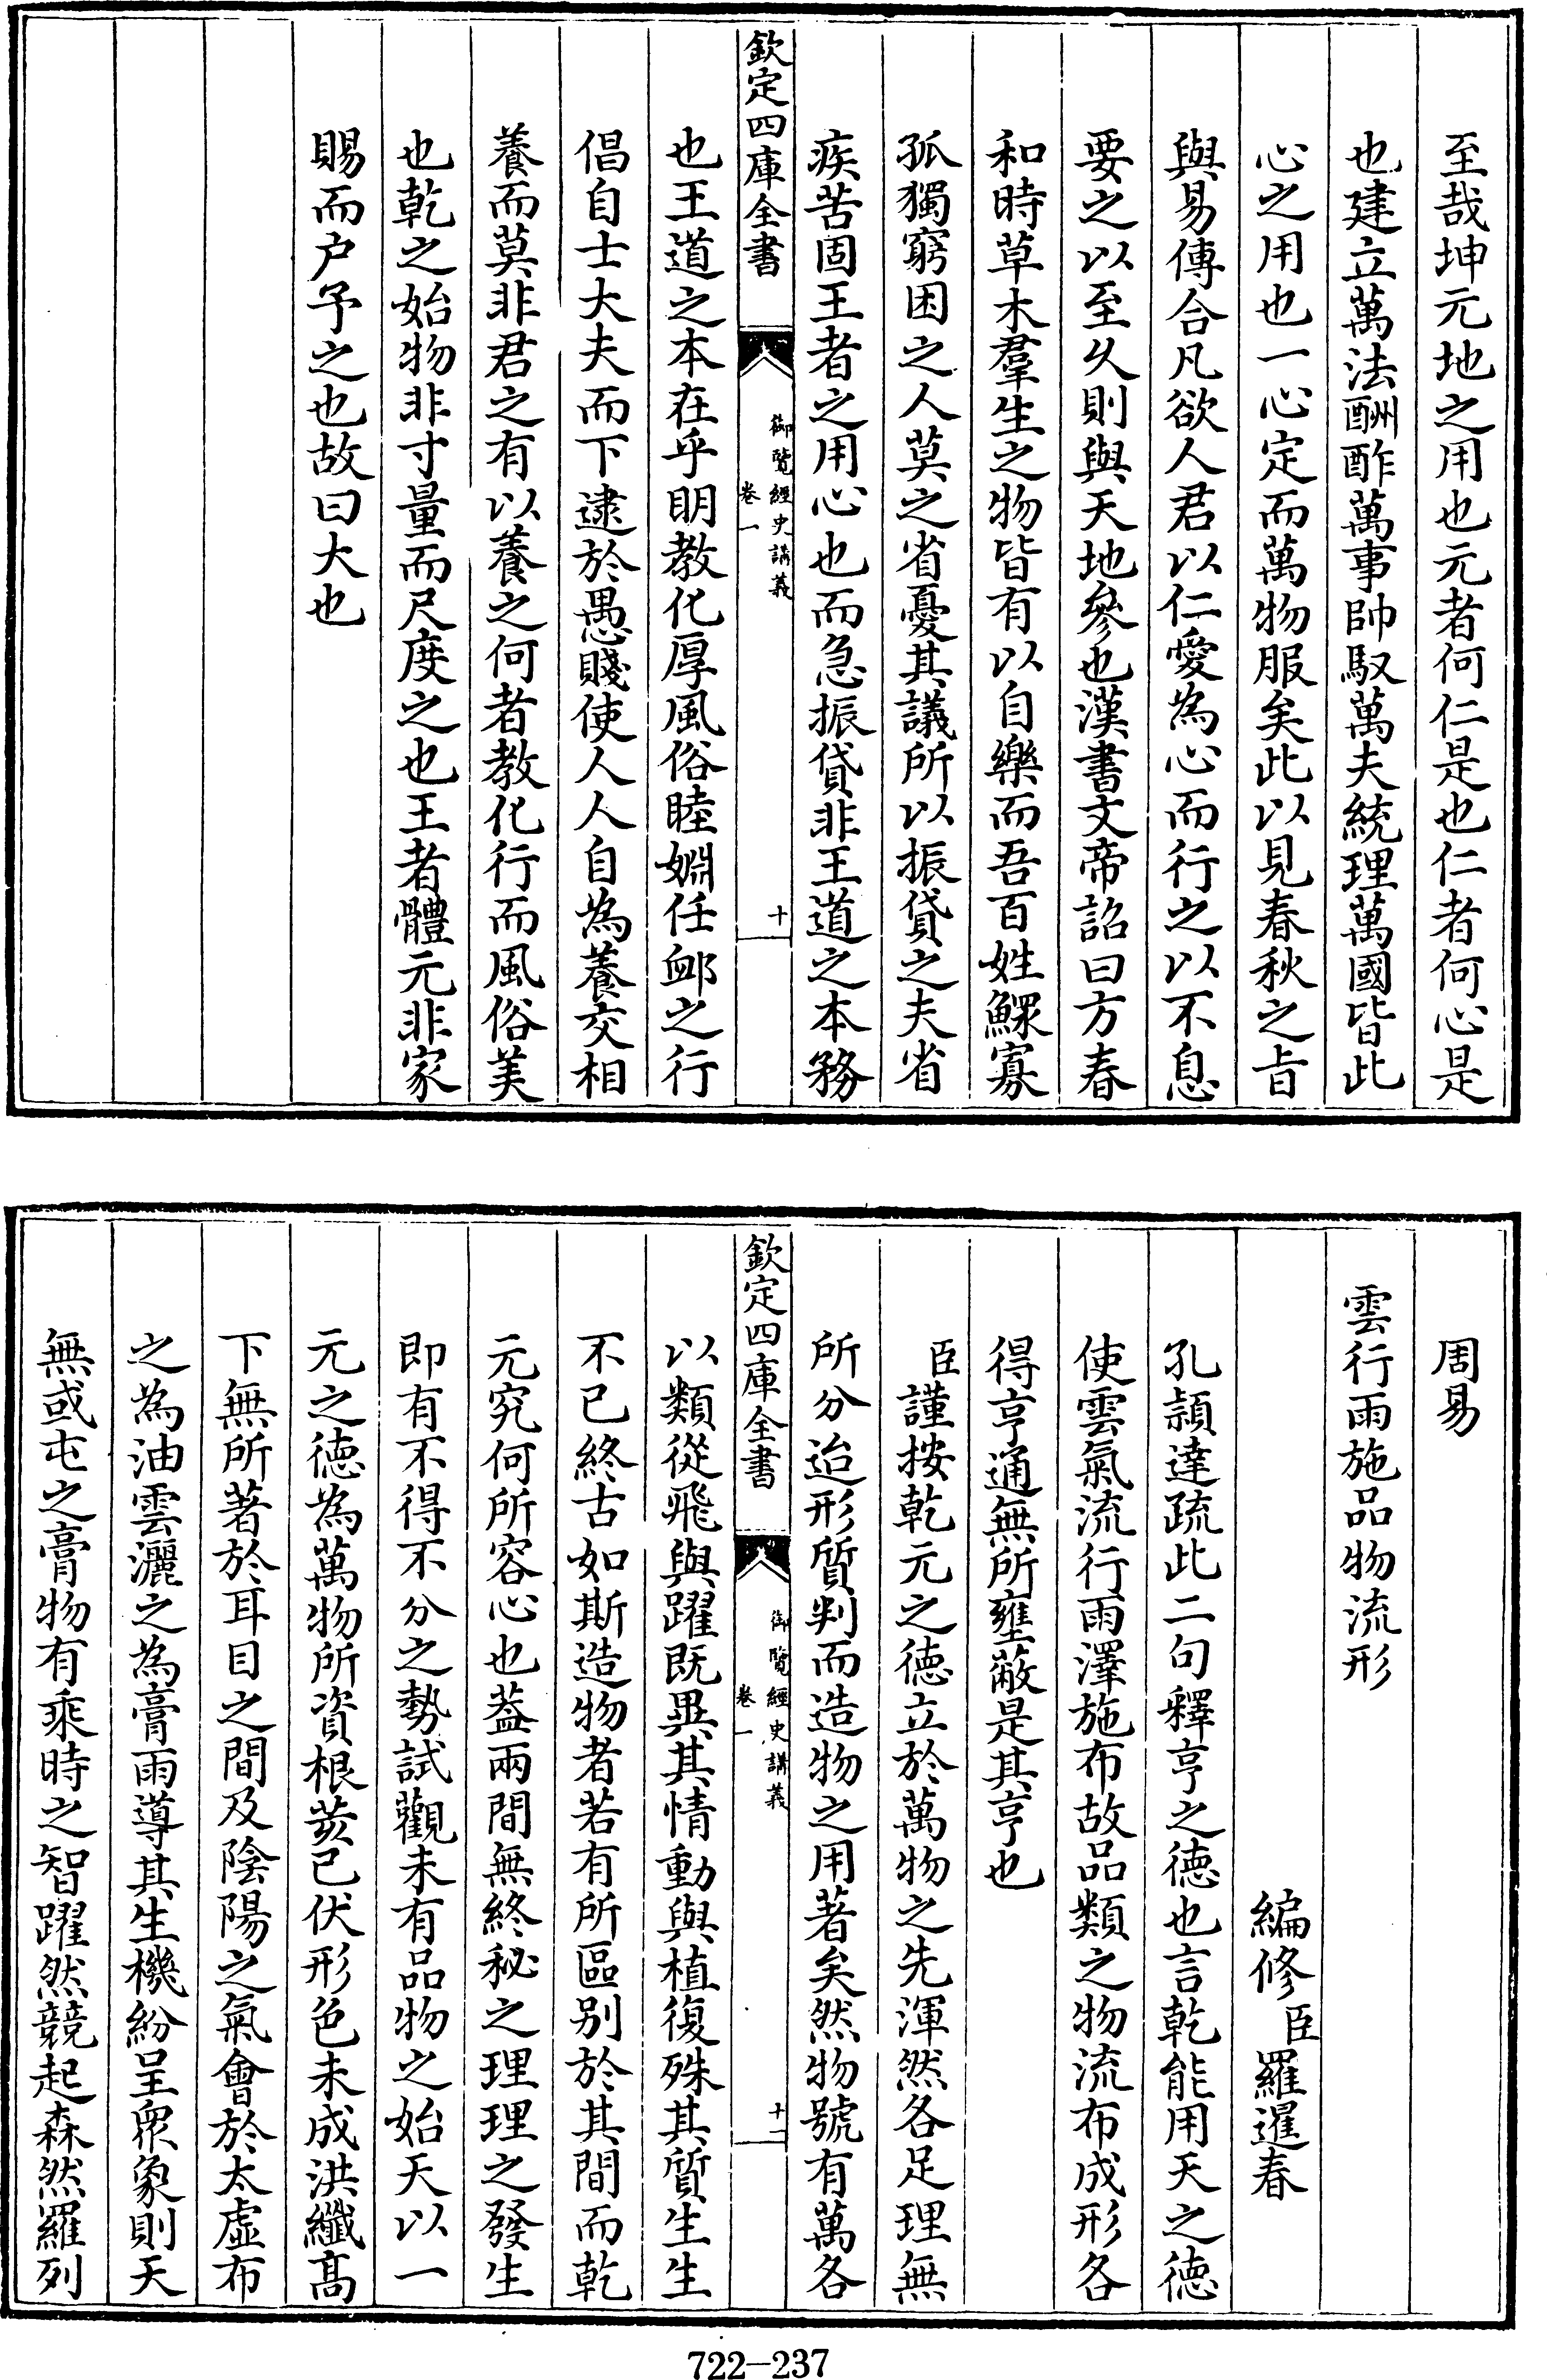 至哉坤元地之用也元者何仁是也仁者何心是
也建立萬法酬酢萬事帥馭萬夫統理萬國皆此
心之用也一心定而萬物服矣此以見春秋之旨
與易傳合凡欲人君以仁愛為心而行之以不息
要之以至乆則與天地參也漢書文帝詔曰方春
和時草木羣生之物皆有以自樂而吾百姓鰥寡
孤獨窮困之人莫之省憂其議所以振貸之夫省
疾苦固王者之用心也而急振貸非王道之本務
欽定四庫全書
御覽經史講義
卷一
十
也王道之本在乎明教化厚風俗睦婣任䘏之行
倡自士大夫而下逮於愚賤使人人自為養交相
養而莫非君之有以養之何者教化行而風俗美
也乾之始物非寸量而尺度之也王者體元非家
賜而户予之也故曰大也
周易
雲行雨施品物流形
編修臣羅暹春
孔頴達疏此二句釋亨之徳也言乾能用天之徳
使雲氣流行雨澤施布故品類之物流布成形各
得亨通無所壅蔽是其亨也
臣謹按乾元之徳立於萬物之先渾然各足理無
所分迨形質判而造物之用著矣然物號有萬各
欽定四庫全書
御覽經史講義
卷一
十一
以類從飛與躍既異其情動與植復殊其質生生
不已終古如斯造物者若有所區别於其間而乾
元究何所容心也葢兩間無終秘之理理之發生
即有不得不分之勢試觀未有品物之始天以一
元之徳為萬物所資根荄已伏形色未成洪纖髙
下無所著於耳目之間及陰陽之氣會於太虚布
之為油雲灑之為膏雨導其生機紛呈衆象則天
無或屯之膏物有乘時之智躍然競起森然羅列
722-237